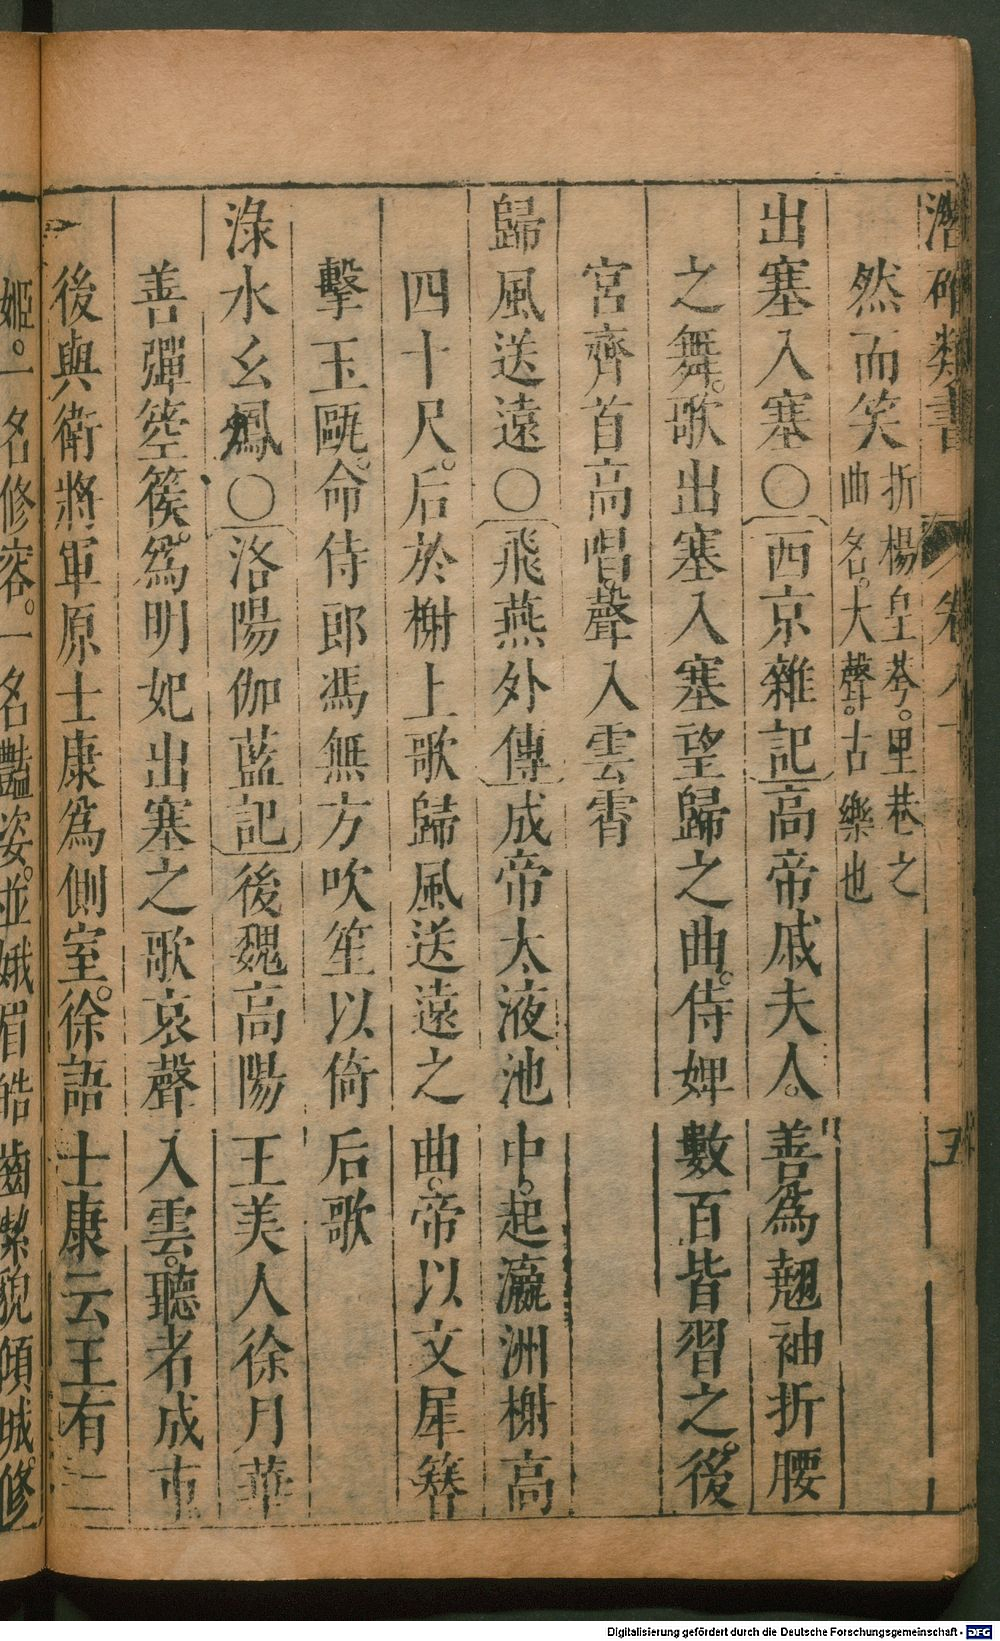 潛確類書 卷八十 五
然而笑折楊皇荂。里巷之曲名。大聲。古樂也
出塞入塞○西京雜記高帝戚夫人。善爲翹袖折腰
之舞。歌出塞入塞望歸之曲。侍婢數百皆習之。後
宮齊首高唱。聲入雲霄
歸風送遠○飛燕外傳成帝太液池中。起瀛洲榭高
四十尺。后於榭上歌歸風送遠之曲。帝以文犀簪
擊玉甌。命侍郎馮無方吹笙以倚后歌
淥水幺鳳○洛陽伽藍記後魏高陽王美人徐月華
善彈箜篌。爲明妃出塞之歌哀聲入雲。聽者成市
後與衛將軍原士康爲側室。徐語士康云王有二
姬。一名修容。一名豔姿。並娥眉皓齒潔貌傾城。修
Digitalisierung gefördert durch die Deutsche Forschungsgemeinschaft - DFG